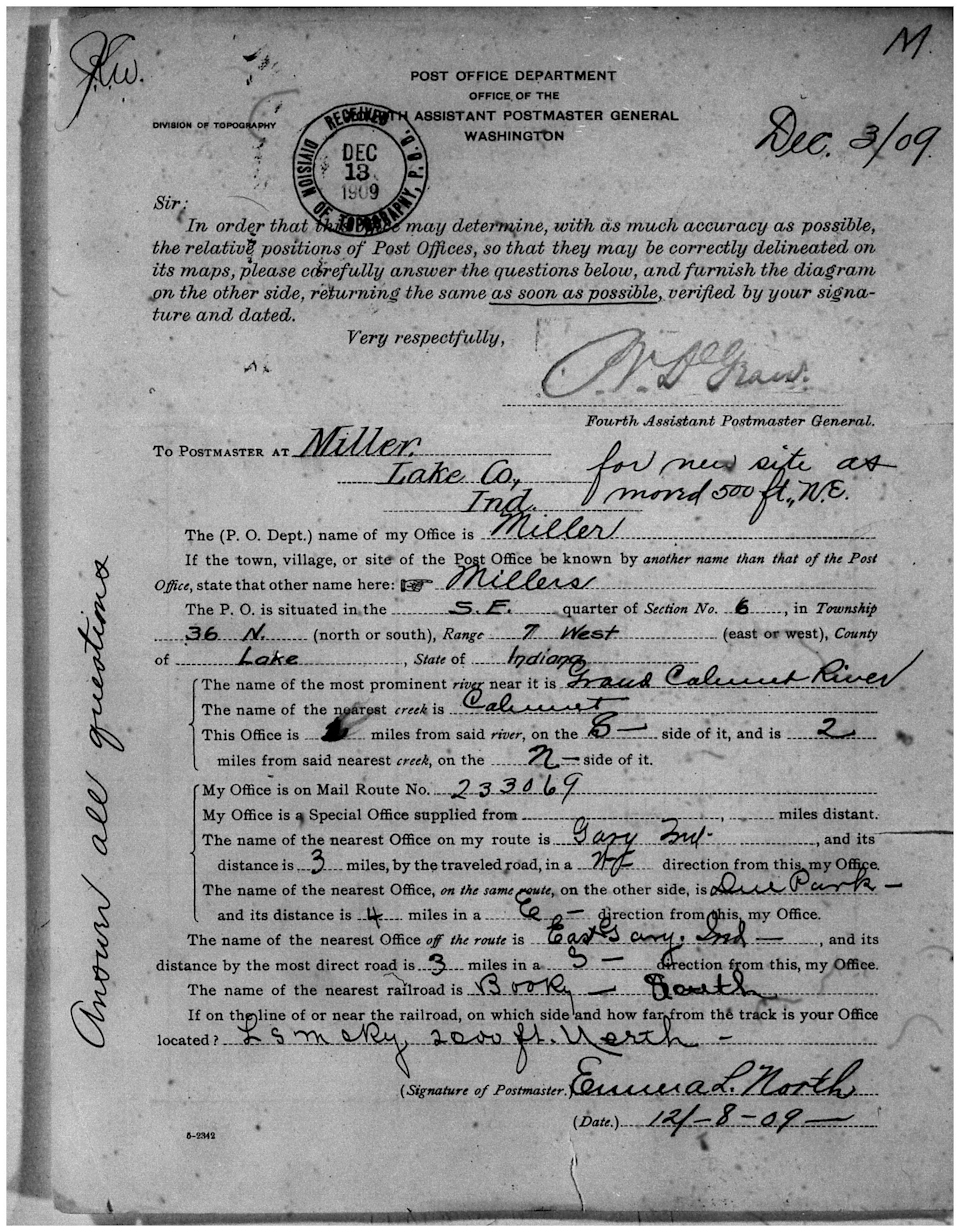 M.
POST OFFICE DEPARTMENT
OFFICE OF THE
DIVISION OF TOPOGRAPHY
TH ASSISTANT POSTMASTER GENERAL
WASHINGTON
Dec. 3/09.
RECEIVED
DEC
13
1909
DIVISION OF TOPOGRAPHY, P. O. D.
Sir:
In order that this may determine, with as much accuracy as possible,
the relative positions of Post Offices, so that they may be correctly delineated on
its maps, please carefully answer the questions below, and furnish the diagram
on the other side, returning the same as soon as possible, verified by your signa-
ture and dated.
Very respectfully,
P. V. DeGraw.
Fourth Assistant Postmaster General.
TO POSTMASTER AT Miller,
Lake Co,
Ind.
for new site as
moved 500 ft., N.E.
The (P. O. Dept.) name of my Office is Miller
If the town, village, or site of the Post Office be known by another name than that of the Post
Office, state that other name here: ☞ Millers
The P. O. is situated in the S.E. quarter of Section No. 6, in Township
36 N. (north or south), Range 7 West (east or west), County
of Lake, State of Indiana
The name of the most prominent river near it is Grand Calumet River
The name of the nearest creek is Calumet
This Office is miles from said river, on the S— side of it, and is 2
miles from said nearest creek, on the N— side of it.
My Office is on Mail Route No. 233069
My Office is a Special Office supplied from , miles distant.
The name of the nearest Office on my route is Gary Ind-, and its
distance is 3 miles, by the traveled road, in a direction from this, my Office.
The name of the nearest Office, on the same route, on the other side, is Dune Park —
and its distance is 4 miles in a E — direction from this, my Office.
The name of the nearest Office off the route is East Gary. Ind —, and its
distance by the most direct road is 3 miles in a S — direction from this, my Office.
The name of the nearest railroad is — South
If on the line of or near the railroad, on which side and how far from the track is your Office
located? L S M S Ry, 2000 ft. North -
(Signature of Postmaster.) Emma L. North
(Date.) 12/-8-09—
5-2342
Answer all questions